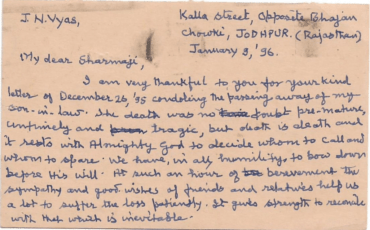 J N. Vyas,
Kalla Street, Opposite Bhajan
Chowki, JODHPUR. (Rajasthan)
January 3, '96.
My dear Sharmaji,
I am very thankful to you for your kind
letter of December 26, '95 condoling the passing away of my
son-in-law. The death was no doubt pre-mature,
untimely and tragic, but death is death and
it rests with Almighty God to decide whom to call and
whom to spare. We have, in all humility, to bow down
before His Will. At such an hour of bereavement the
sympathy and good wishes of friends and relatives help us
a lot to suffer the loss patiently. It gives strength to reconcile
with that which is inevitable.